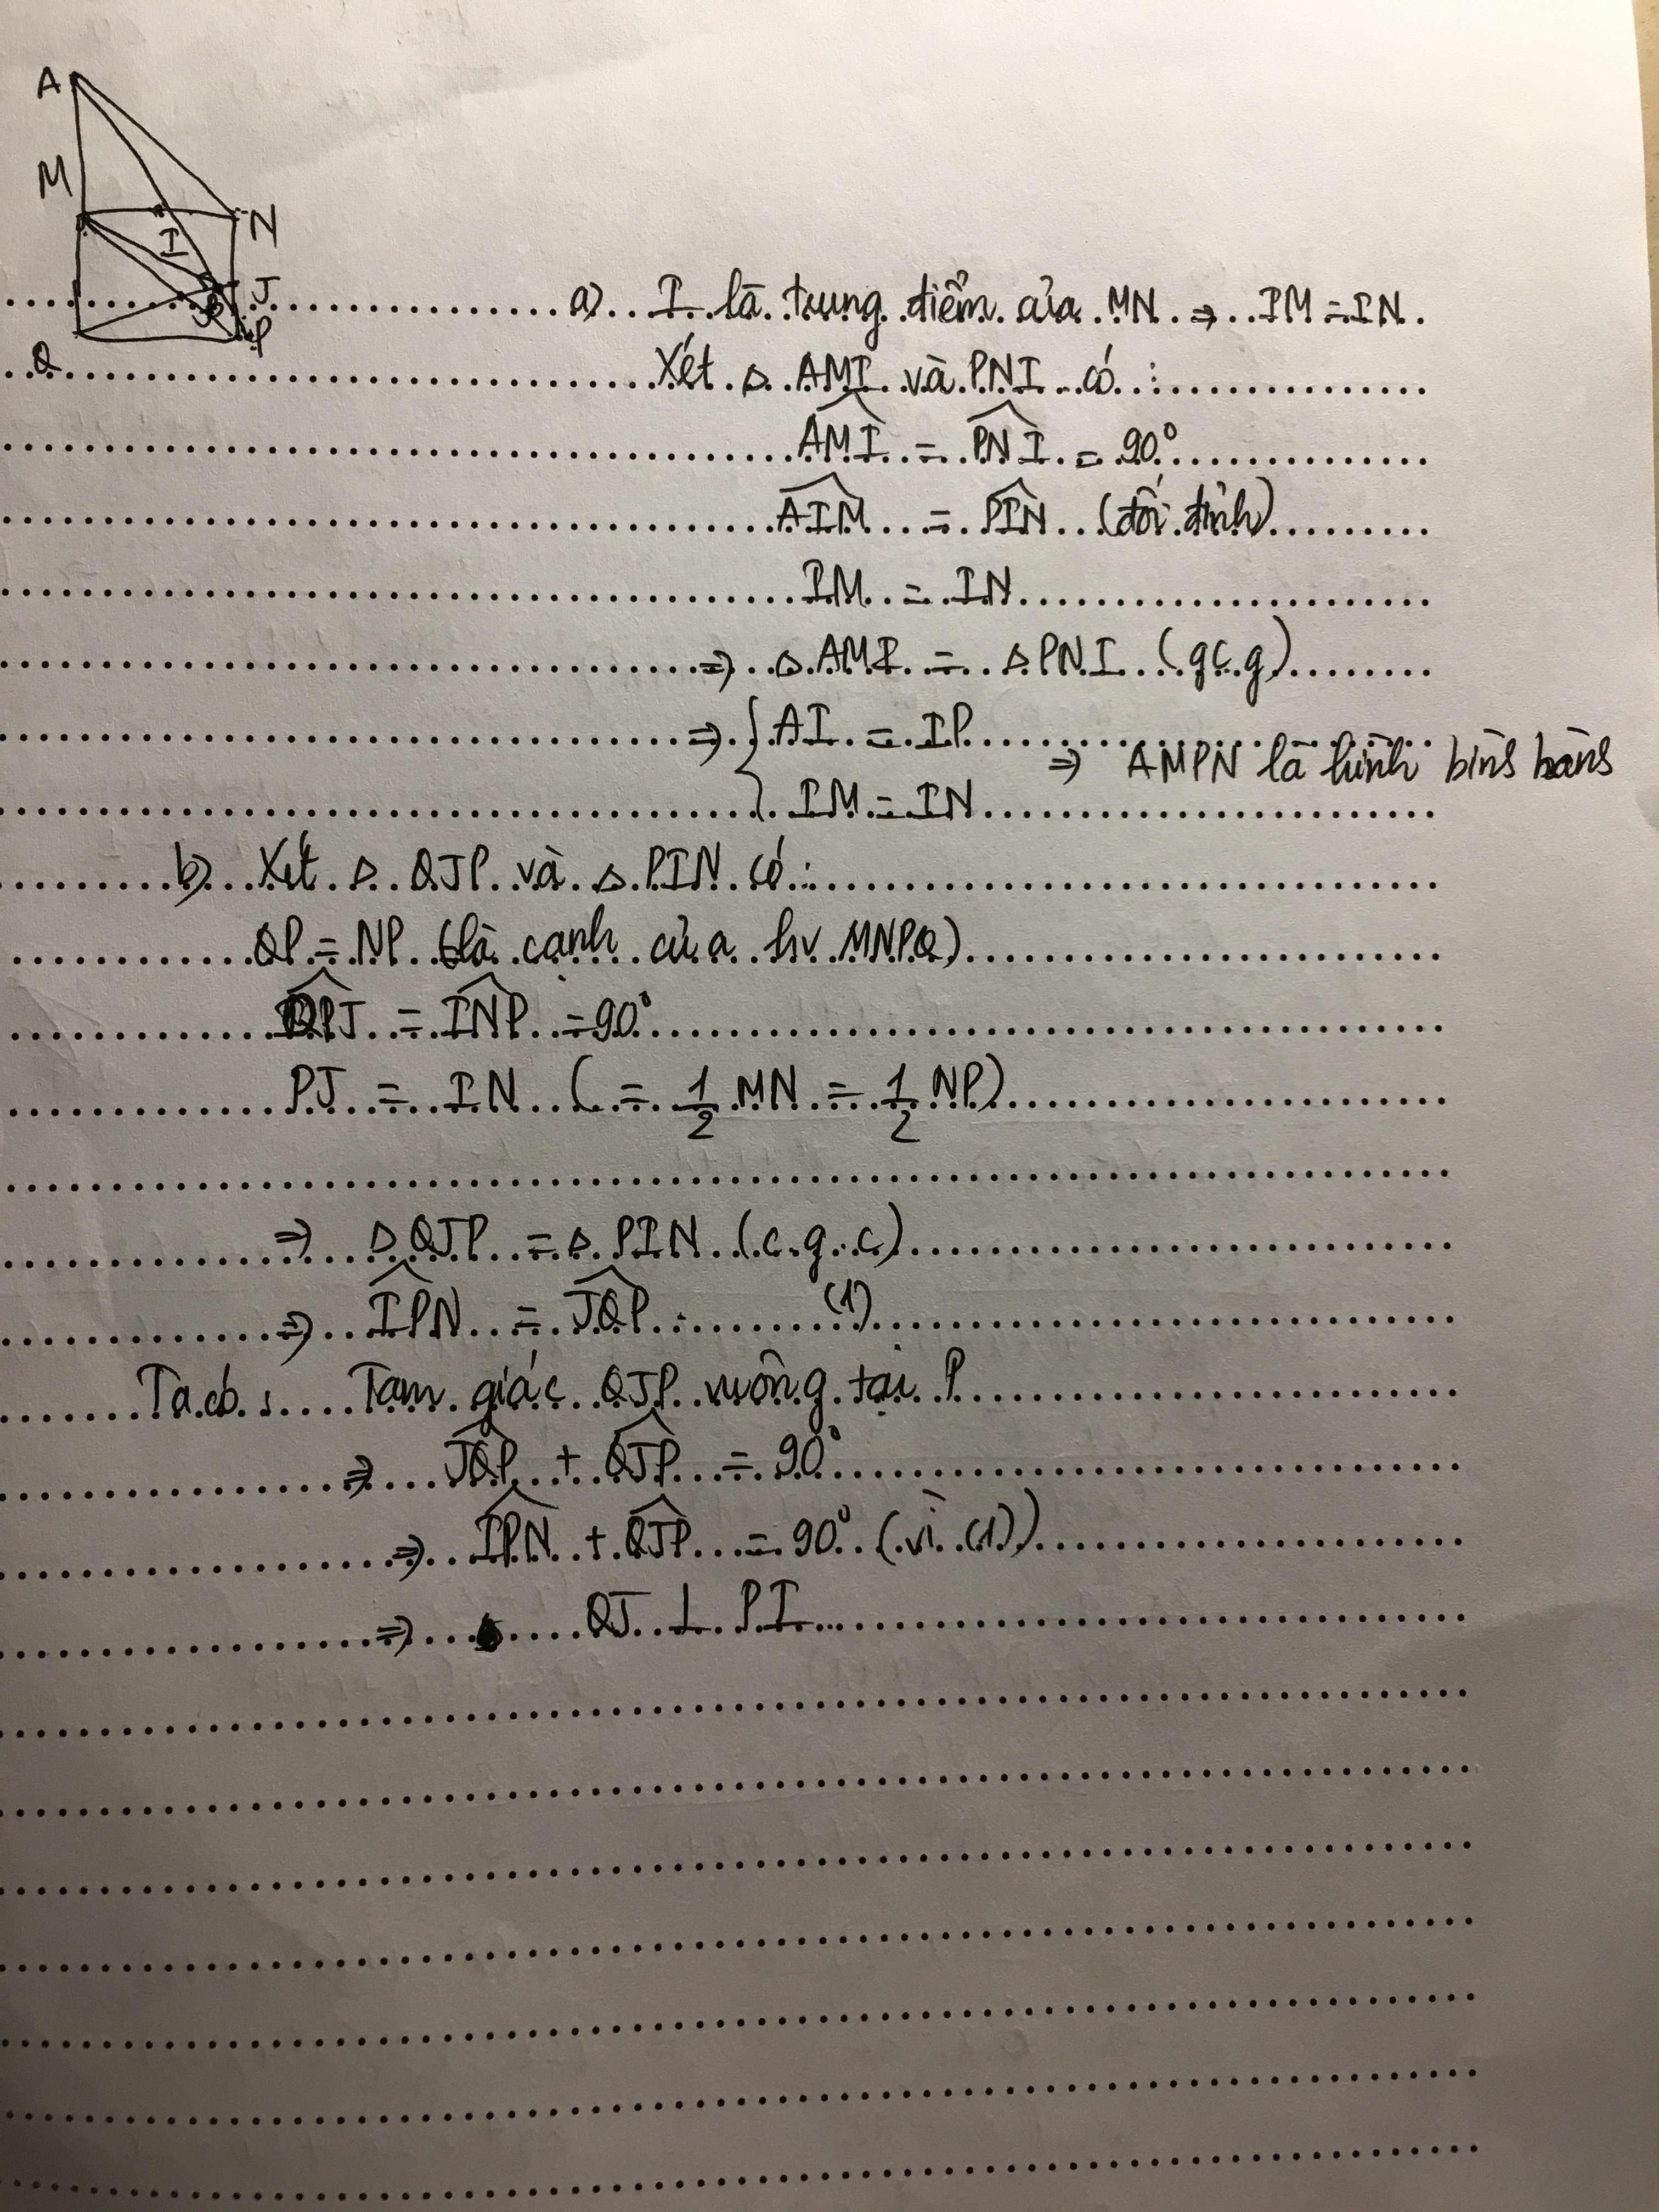 A
M
N
I
J
P
Q
a) I là trung điểm của MN ⇒ IM = IN.
Xét Δ AMI và PNI có :
AMI = PNI = 90°
AIM = PIN (đối đỉnh)
IM = IN
⇒ Δ AMI = Δ PNI (g.c.g)
⇒ { AI = IP
IM = IN ⇒ AMPN là hình bình hành
b) Xét Δ QJP và Δ PIN có :
QP = NP (là cạnh của hv MNPQ)
QPJ = INP = 90°
PJ = IN ( = 1/2 MN = 1/2 NP)
⇒ Δ QJP = Δ PIN (c.g.c)
⇒ IPN = JQP (1)
Ta có : Tam giác QJP vuông tại P
⇒ JQP + QJP = 90°
⇒ IPN + QJP = 90° (vì (1))
⇒ QJ ⊥ PI